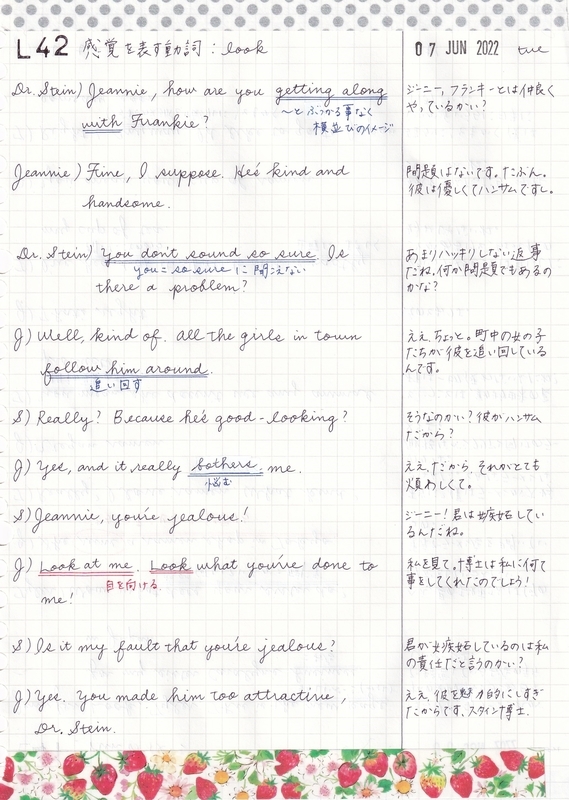 L42 感覚を表す動詞 : look
07 JUN 2022 tue
Dr. Stein) Jeannie, how are you getting along
〜とぶつかる事なく
with Frankie?
横並びのイメージ
ジーニー, フランキーとは仲良く
やっているかい?
Jeannie) Fine, I suppose. He's kind and
handsome.
問題はないです。たぶん。
彼は優しくてハンサムですし。
Dr. Stein) You don't sound so sure. Is
you = so sure に聞こえない
there a problem?
あまりハッキリしない返事
だね。何か問題でもあるの
かな?
J) Well, kind of. All the girls in town
follow him around.
追い回す
ええ、ちょっと。町中の女の子
たちが彼を追い回している
んです。
S) Really? Because he's good-looking?
そうなのかい? 彼がハンサム
だから?
J) Yes, and it really bothers me.
悩む
ええ、だから、それがとても
煩わしくて。
S) Jeannie, you're jealous!
ジーニー! 君は嫉妬してい
るんだね。
J) Look at me. Look what you've done to
目を向ける
me!
私を見て。博士は私に何て
事をしてくれたのでしょう!
S) Is it my fault that you're jealous?
君が嫉妬しているのは私
の責任だと言うのかい?
J) Yes. You made him too attractive,
Dr. Stein.
ええ、彼を魅力的にしすぎ
たからです、スタイン博士.